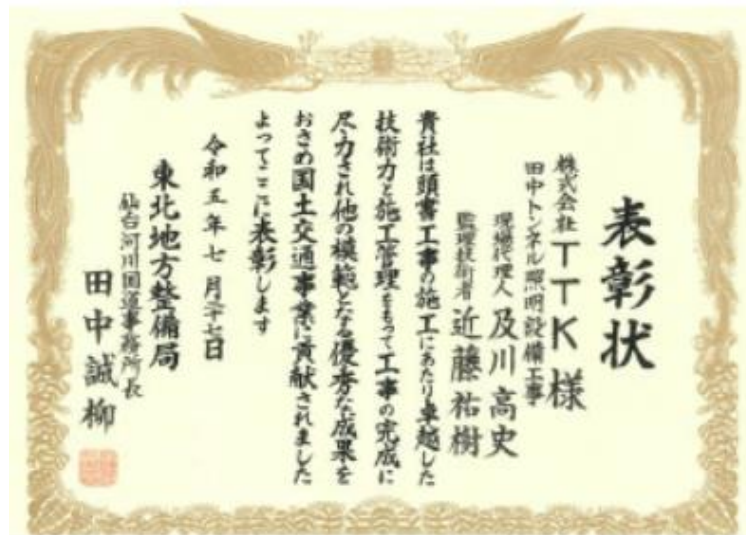 表彰状
株式会社TTK様
田中トンネル照明設備工事
現場代理人 及川高史
監理技術者 近藤祐樹
貴社は頭書工事の施工にあたり卓越した
技術力と施工管理をもって工事の完成に
尽力され他の模範となる優秀な成果を
おさめ国土交通事業に貢献されました
よってここに表彰します
令和五年七月二十七日
東北地方整備局
仙台河川国道事務所長
田中誠柳